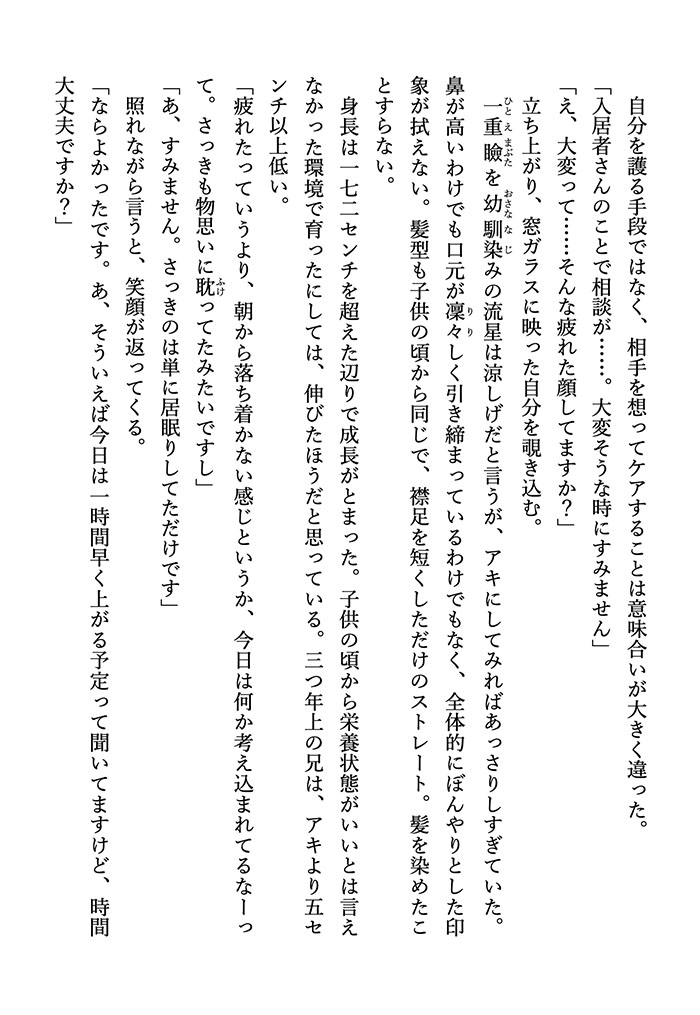 自分を護る手段ではなく、相手を想ってケアすることは意味合いが大きく違った。
「入居者さんのことで相談が……。大変そうな時にすみません」
「え、大変って……そんな疲れた顔してますか？」
立ち上がり、窓ガラスに映った自分を覗き込む。
一重瞼を幼馴染みの流星は涼しげだと言うが、アキにしてみればあっさりしすぎていた。
鼻が高いわけでも口元が凜々しく引き締まっているわけでもなく、全体的にぼんやりとした印
象が拭えない。髪型も子供の頃から同じで、襟足を短くしただけのストレート。髪を染めたこ
とすらない。
身長は一七二センチを超えた辺りで成長がとまった。子供の頃から栄養状態がいいとは言え
なかった環境で育ったにしては、伸びたほうだと思っている。三つ年上の兄は、アキより五セ
ンチ以上低い。
「疲れたっていうより、朝から落ち着かない感じというか、今日は何か考え込まれてるなーっ
て。さっきも物思いに耽ってたみたいですし」
「あ、すみません。さっきのは単に居眠りしてただけです」
照れながら言うと、笑顔が返ってくる。
「ならよかったです。あ、そういえば今日は一時間早く上がる予定って聞いてますけど、時間
大丈夫ですか？」